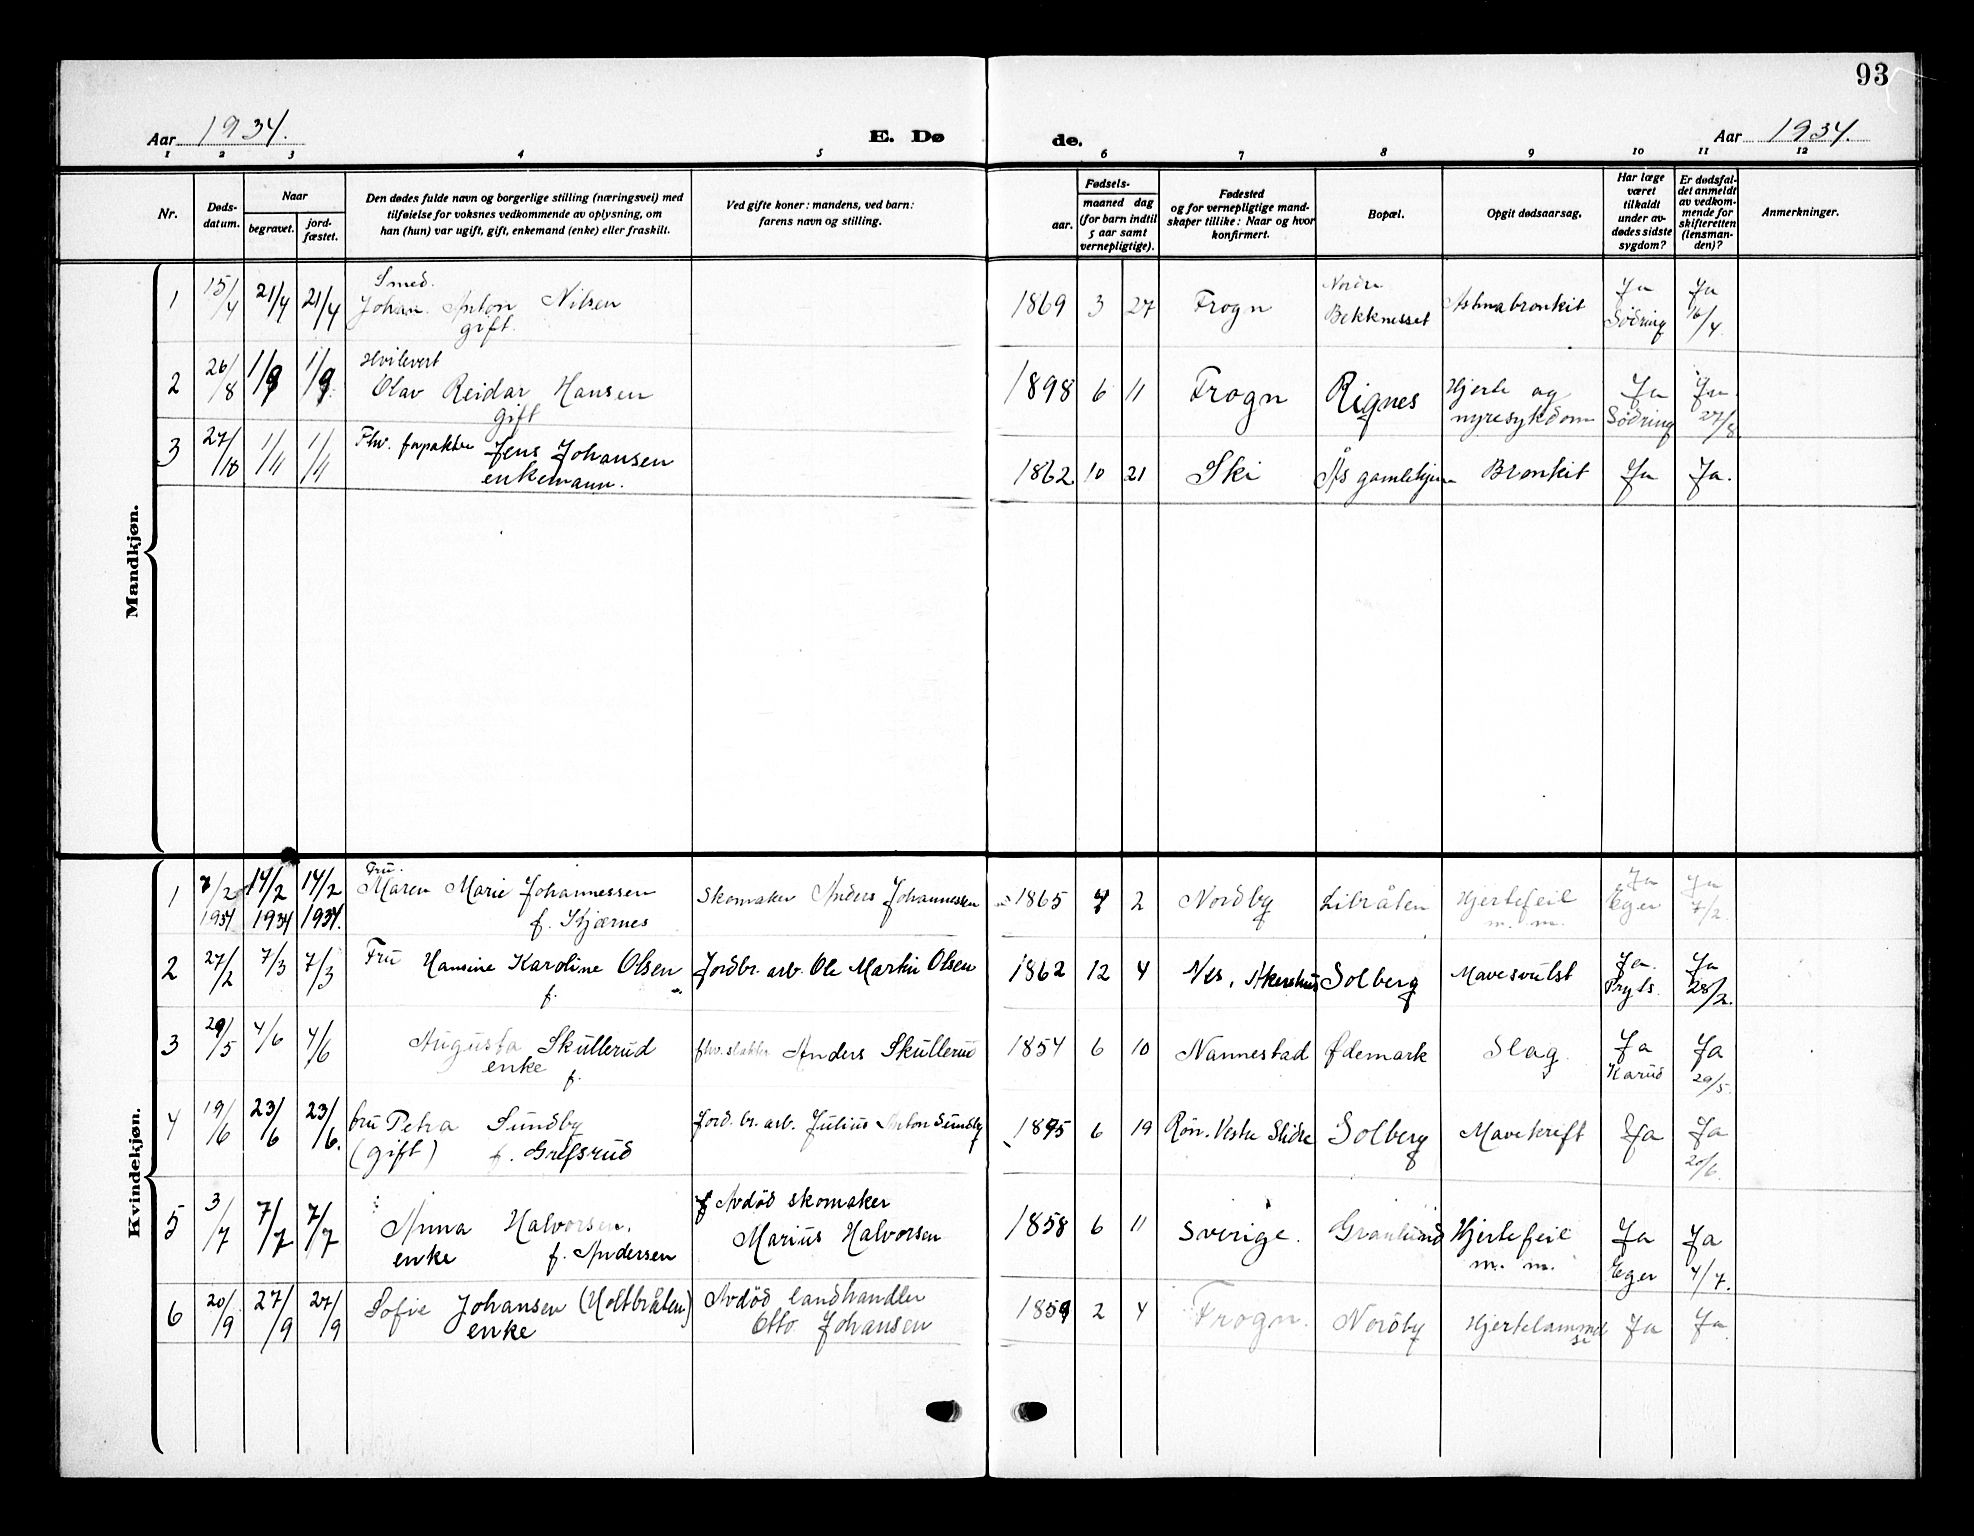 93
Aar 1934. E. Dø de. Aar 1934.
1 2 3 4 5 6 7 8 9 10 11 12
Nr.
Døds-
datum.
Naar
begravet.
jord-
fæstet.
Den dødes fulde navn og borgerlige stilling (næringsvei) med
tilføielse for voksnes vedkommende av oplysning, om
han (hun) var ugift, gift, enkemand (enke) eller fraskilt.
Ved gifte koner: mandens, ved barn:
farens navn og stilling.
Fødsels-
aar.
maaned dag
(for barn indtil
5 aar samt
vernepligtige).
Fødested
og for vernepligtige mand-
skaper tillike: Naar og hvor
konfirmert.
Bopæl.
Opgit dødsaarsag.
Har læge
været
tilkaldt
under av-
dødes sidste
sygdom?
Er dødsfal-
det anmeldt
av vedkom-
mende for
skifteretten
(lensman-
den)?
Anmerkninger.
Mandkjøn.
Smed. Nordre Ja Ja
1 15/4 21/4 21/4 Johan Anton Nilsen 1869 3 27 Frogn Bekknesset Astmabronkit Sødring 16/4.
gift.
Hvilevert
2 26/8 1/9 1/9. Olav Reidar Hansen 1898 6 11 Frogn Rignes Hjerte og Ja Ja.
gift nyresykdom Sødring 27/8.
3 27/10 1/11 1/11 Fhv. forpakter Jens Johansen 1862 10 21 Ski Ås gamlehjem Bronkit Ja Ja.
enkemann.
Kvindekjøn.
Fru. Ja Ja
1 7/2 14/2 14/2 Maren Marie Johannessen Skomaker Anders Johannessen 1865 4 2 Nordby Libråten Hjertefeil Eger 7/2.
1934 1934 1934. f. Kjærnes m. m.
2 27/2 7/3 7/3 Fru Hansine Karoline Olsen Jordbr. arb. Ole Martin Olsen 1862 12 4 Nes, Akershus Solberg Mavesvulst Ja. Ja
f. Pryts. 28/2.
3 29/5 4/6 4/6 Augusta Skullerud fhv. Anders Skullerud 1854 6 10 Nannestad Ødemark Slag. Ja Ja
enke f. Karud 29/5.
4 19/6 23/6 23/6. fru Petra Sundby Jord. br. arb. Julius Anton Sundby 1895 6 19 Røn. Vestre Slidre Solberg Mavekreft Ja Ja
(gift) f. Grefsrud 20/6.
5 3/7 7/7 7/7 Anna Halvorsen. Avdød skomaker 1858 6 11 Sverige. Granlund Hjertefeil Ja Ja
enke f. Andersen Marius Halvorsen m. m. Eger 4/7.
6 20/9 27/9 27/9 Sofie Johansen (Holtbråten) Avdød landhandler 1859 2 4 Frogn. Nordby Hjertelammelse Ja Ja
enke Otto Johansen